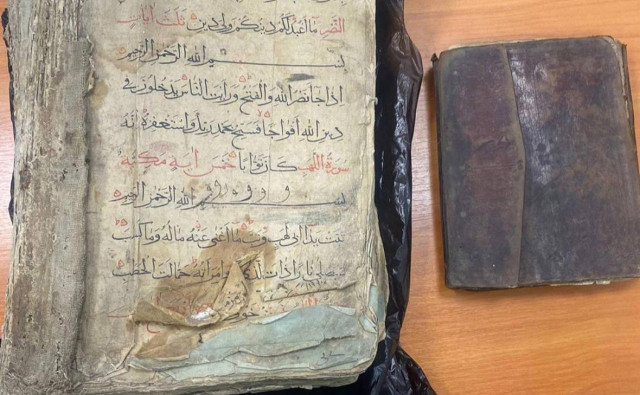 النصر ما اعبد لكم دينكم ولي دين ثلث ايات
بسم الله الرحمن الرحيم
اذا جا نصر الله والفتح ورايت الناس يدخلون في
دين الله افواجا فسبح بحمد ربك واستغفره انه
سورة اللهب كان توابا خمس اية مكية
بسم الله الرحمن الرحيم
تبت يدا ابي لهب وتب ما اغنى عنه ماله وما كسب
سيصلى نارا ذات وامراته حمالت الحطب